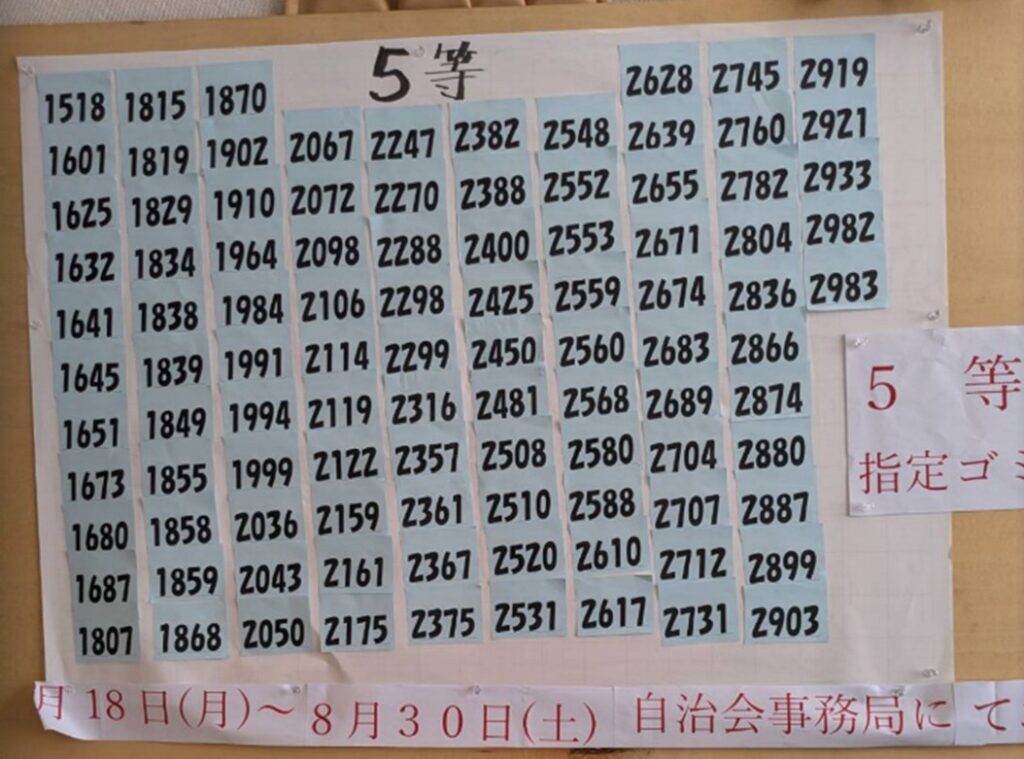 5等
1518 1815 1870 2628 2745 2919
1601 1819 1902 2067 2247 2382 2548 2639 2760 2921
1625 1829 1910 2072 2270 2388 2552 2655 2782 2933
1632 1834 1964 2098 2288 2400 2553 2671 2804 2982
1641 1838 1984 2106 2298 2425 2559 2674 2836 2983
1645 1839 1991 2114 2299 2450 2560 2683 2866
1651 1849 1994 2119 2316 2481 2568 2689 2874
1673 1855 1999 2122 2357 2508 2580 2704 2880
1680 1858 2036 2159 2361 2510 2588 2707 2887
1687 1859 2043 2161 2367 2520 2610 2712 2899
1807 1868 2050 2175 2375 2531 2617 2731 2903
5 等
指定ゴミ
月18日(月)~8月30日(土) 自治会事務局にて